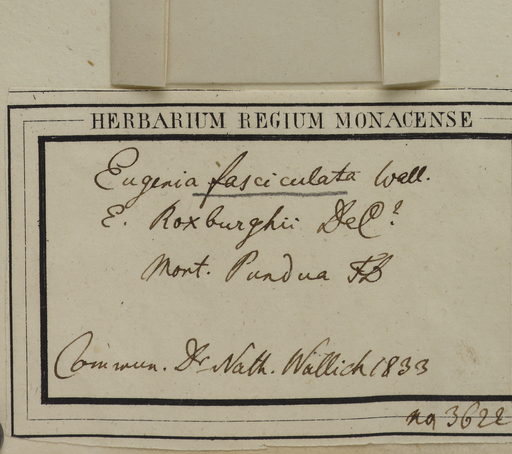 HERBARIUM REGIUM MONACENSE
Eugenia fasciculata Wall.
E. Roxburghii DeC?
Mont. Pundua
Commun. Dr. Nath. Wallich 1833
no 3622